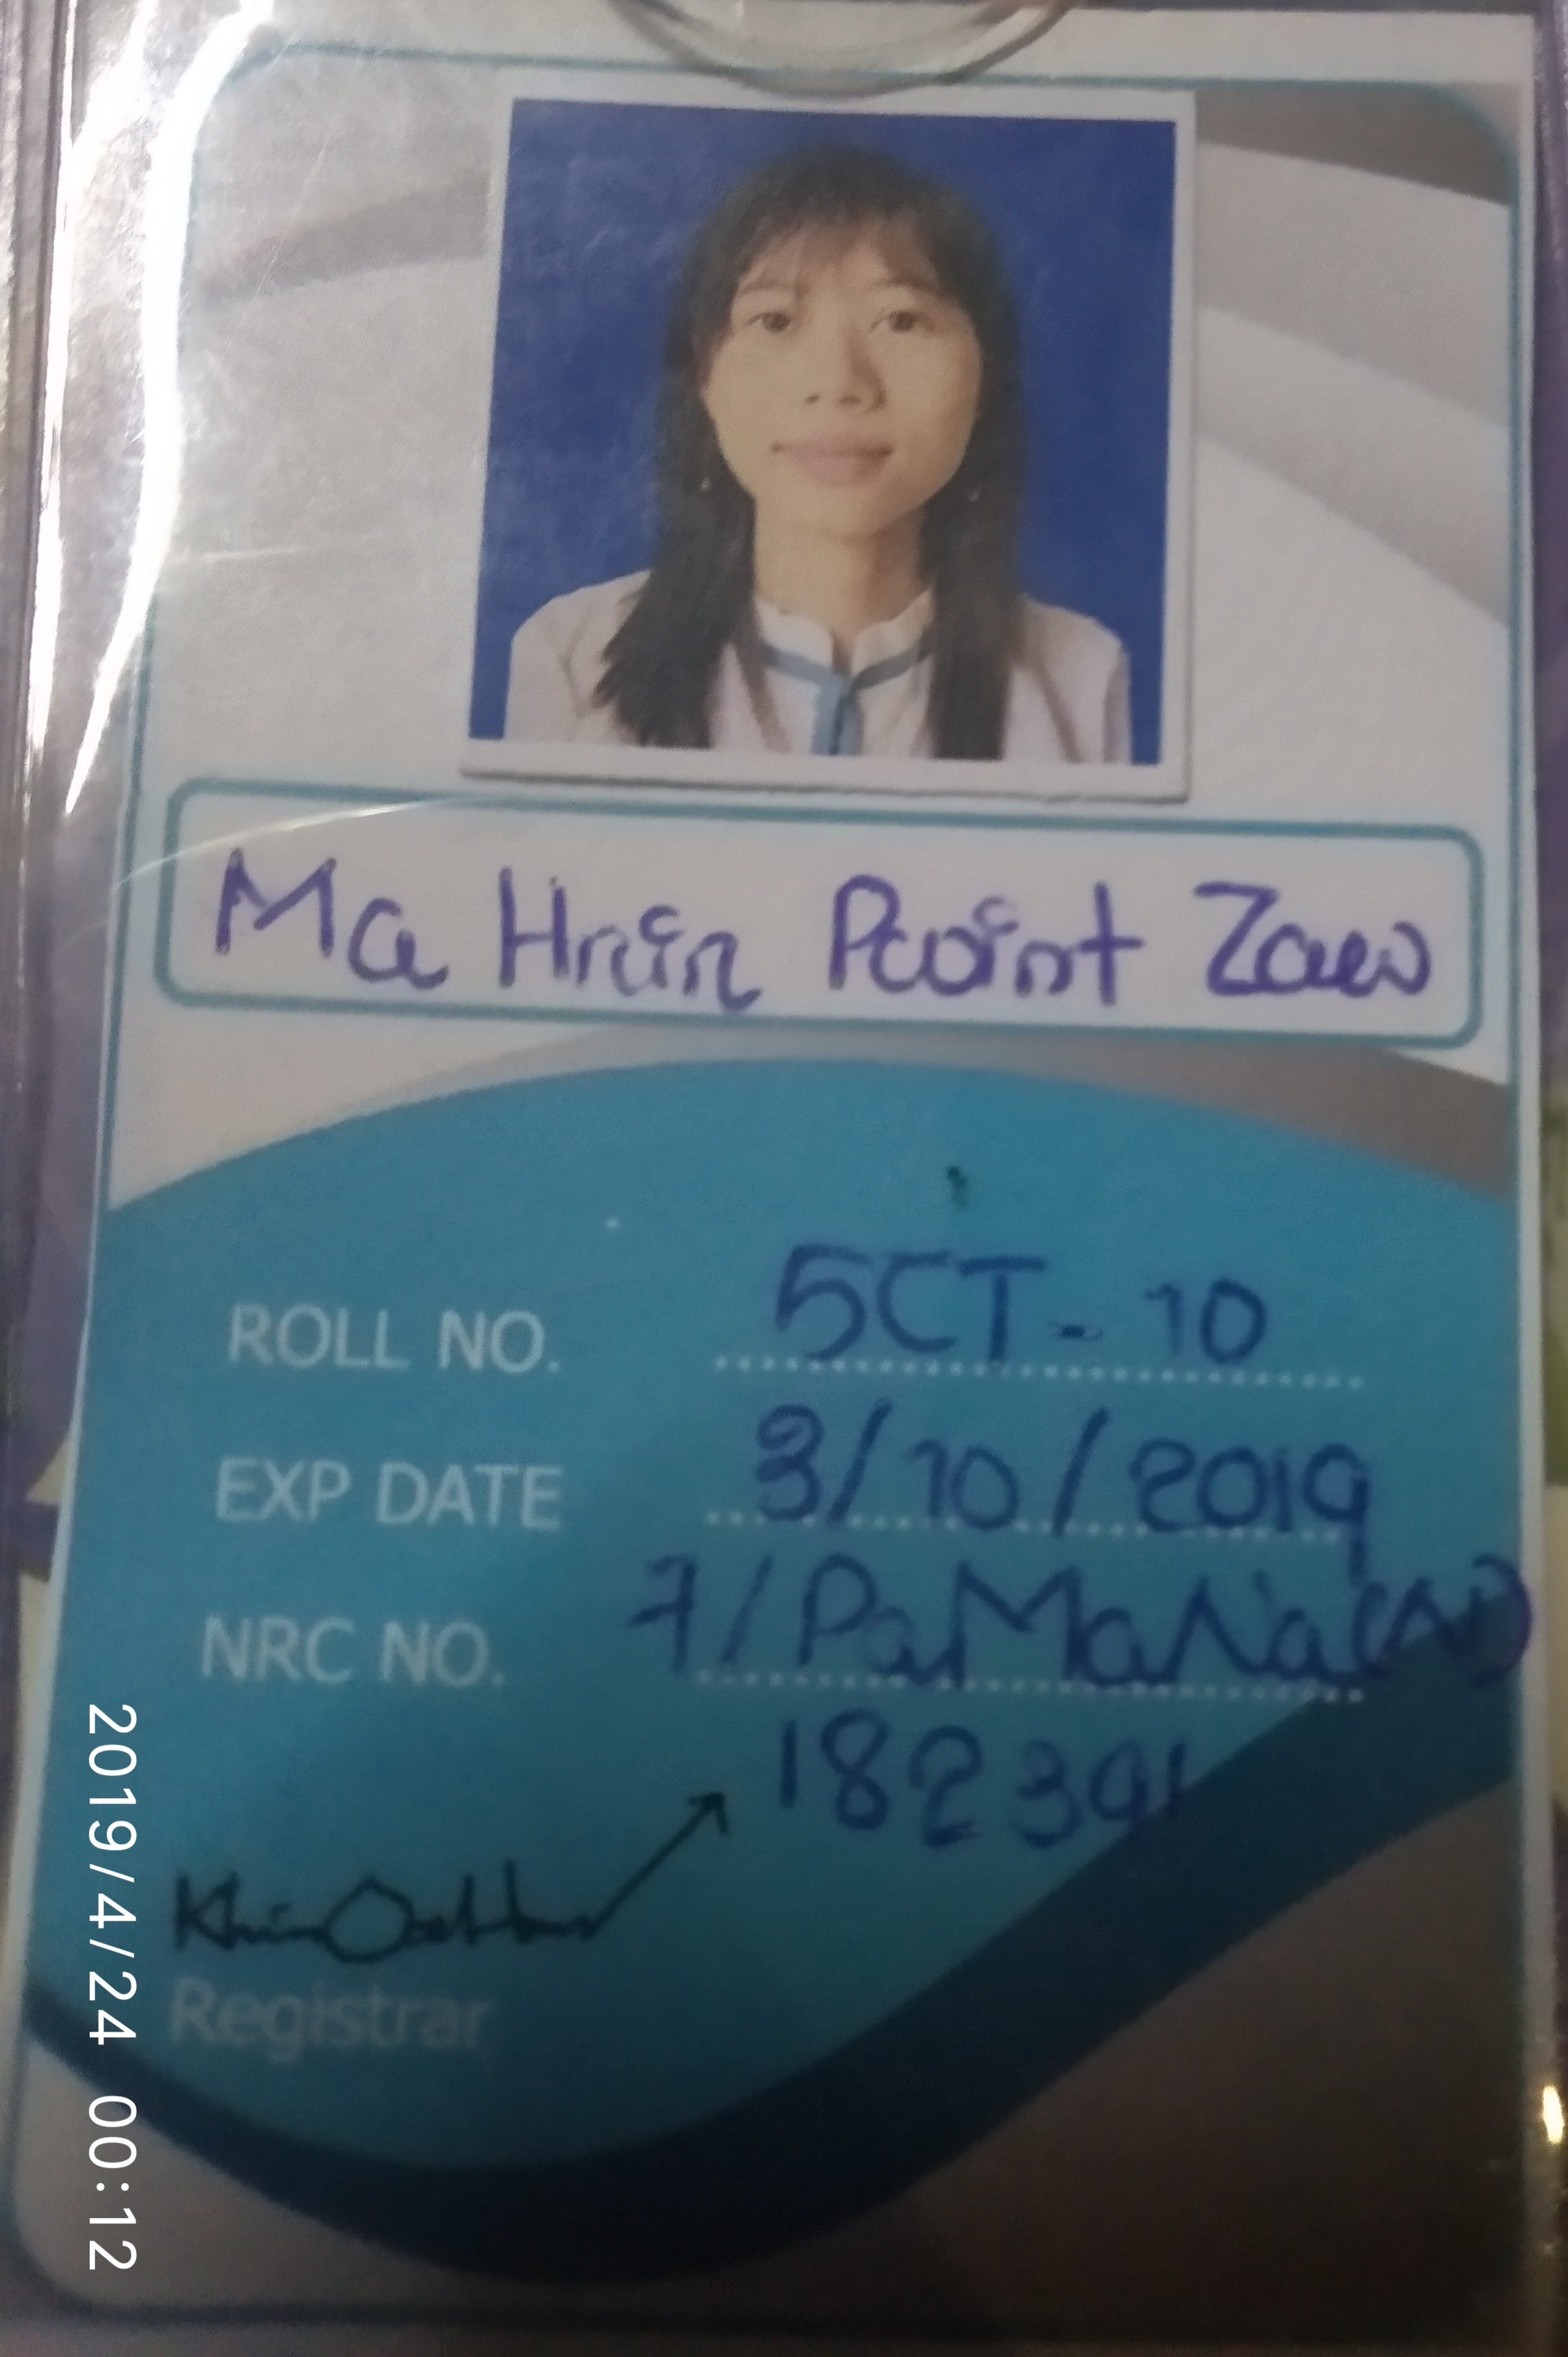 Ma Hnin Pwint Zaw
ROLL NO. 5CT - 10
EXP DATE 3/10/2019
NRC NO. 7/PaMaNa(N)
182391
Registrar
2019/4/24 00:12